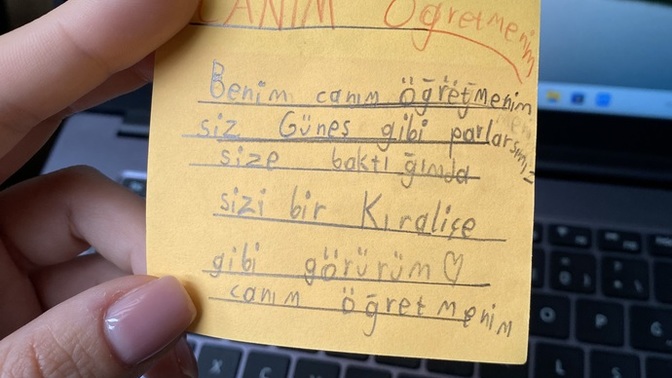 CANIM Öğretmenim
Benim canım öğretmenim
siz Güneş gibi parlarsınız
size baktığımda
sizi bir Kıraliçe
gibi görürüm ♡
canım öğretmenim